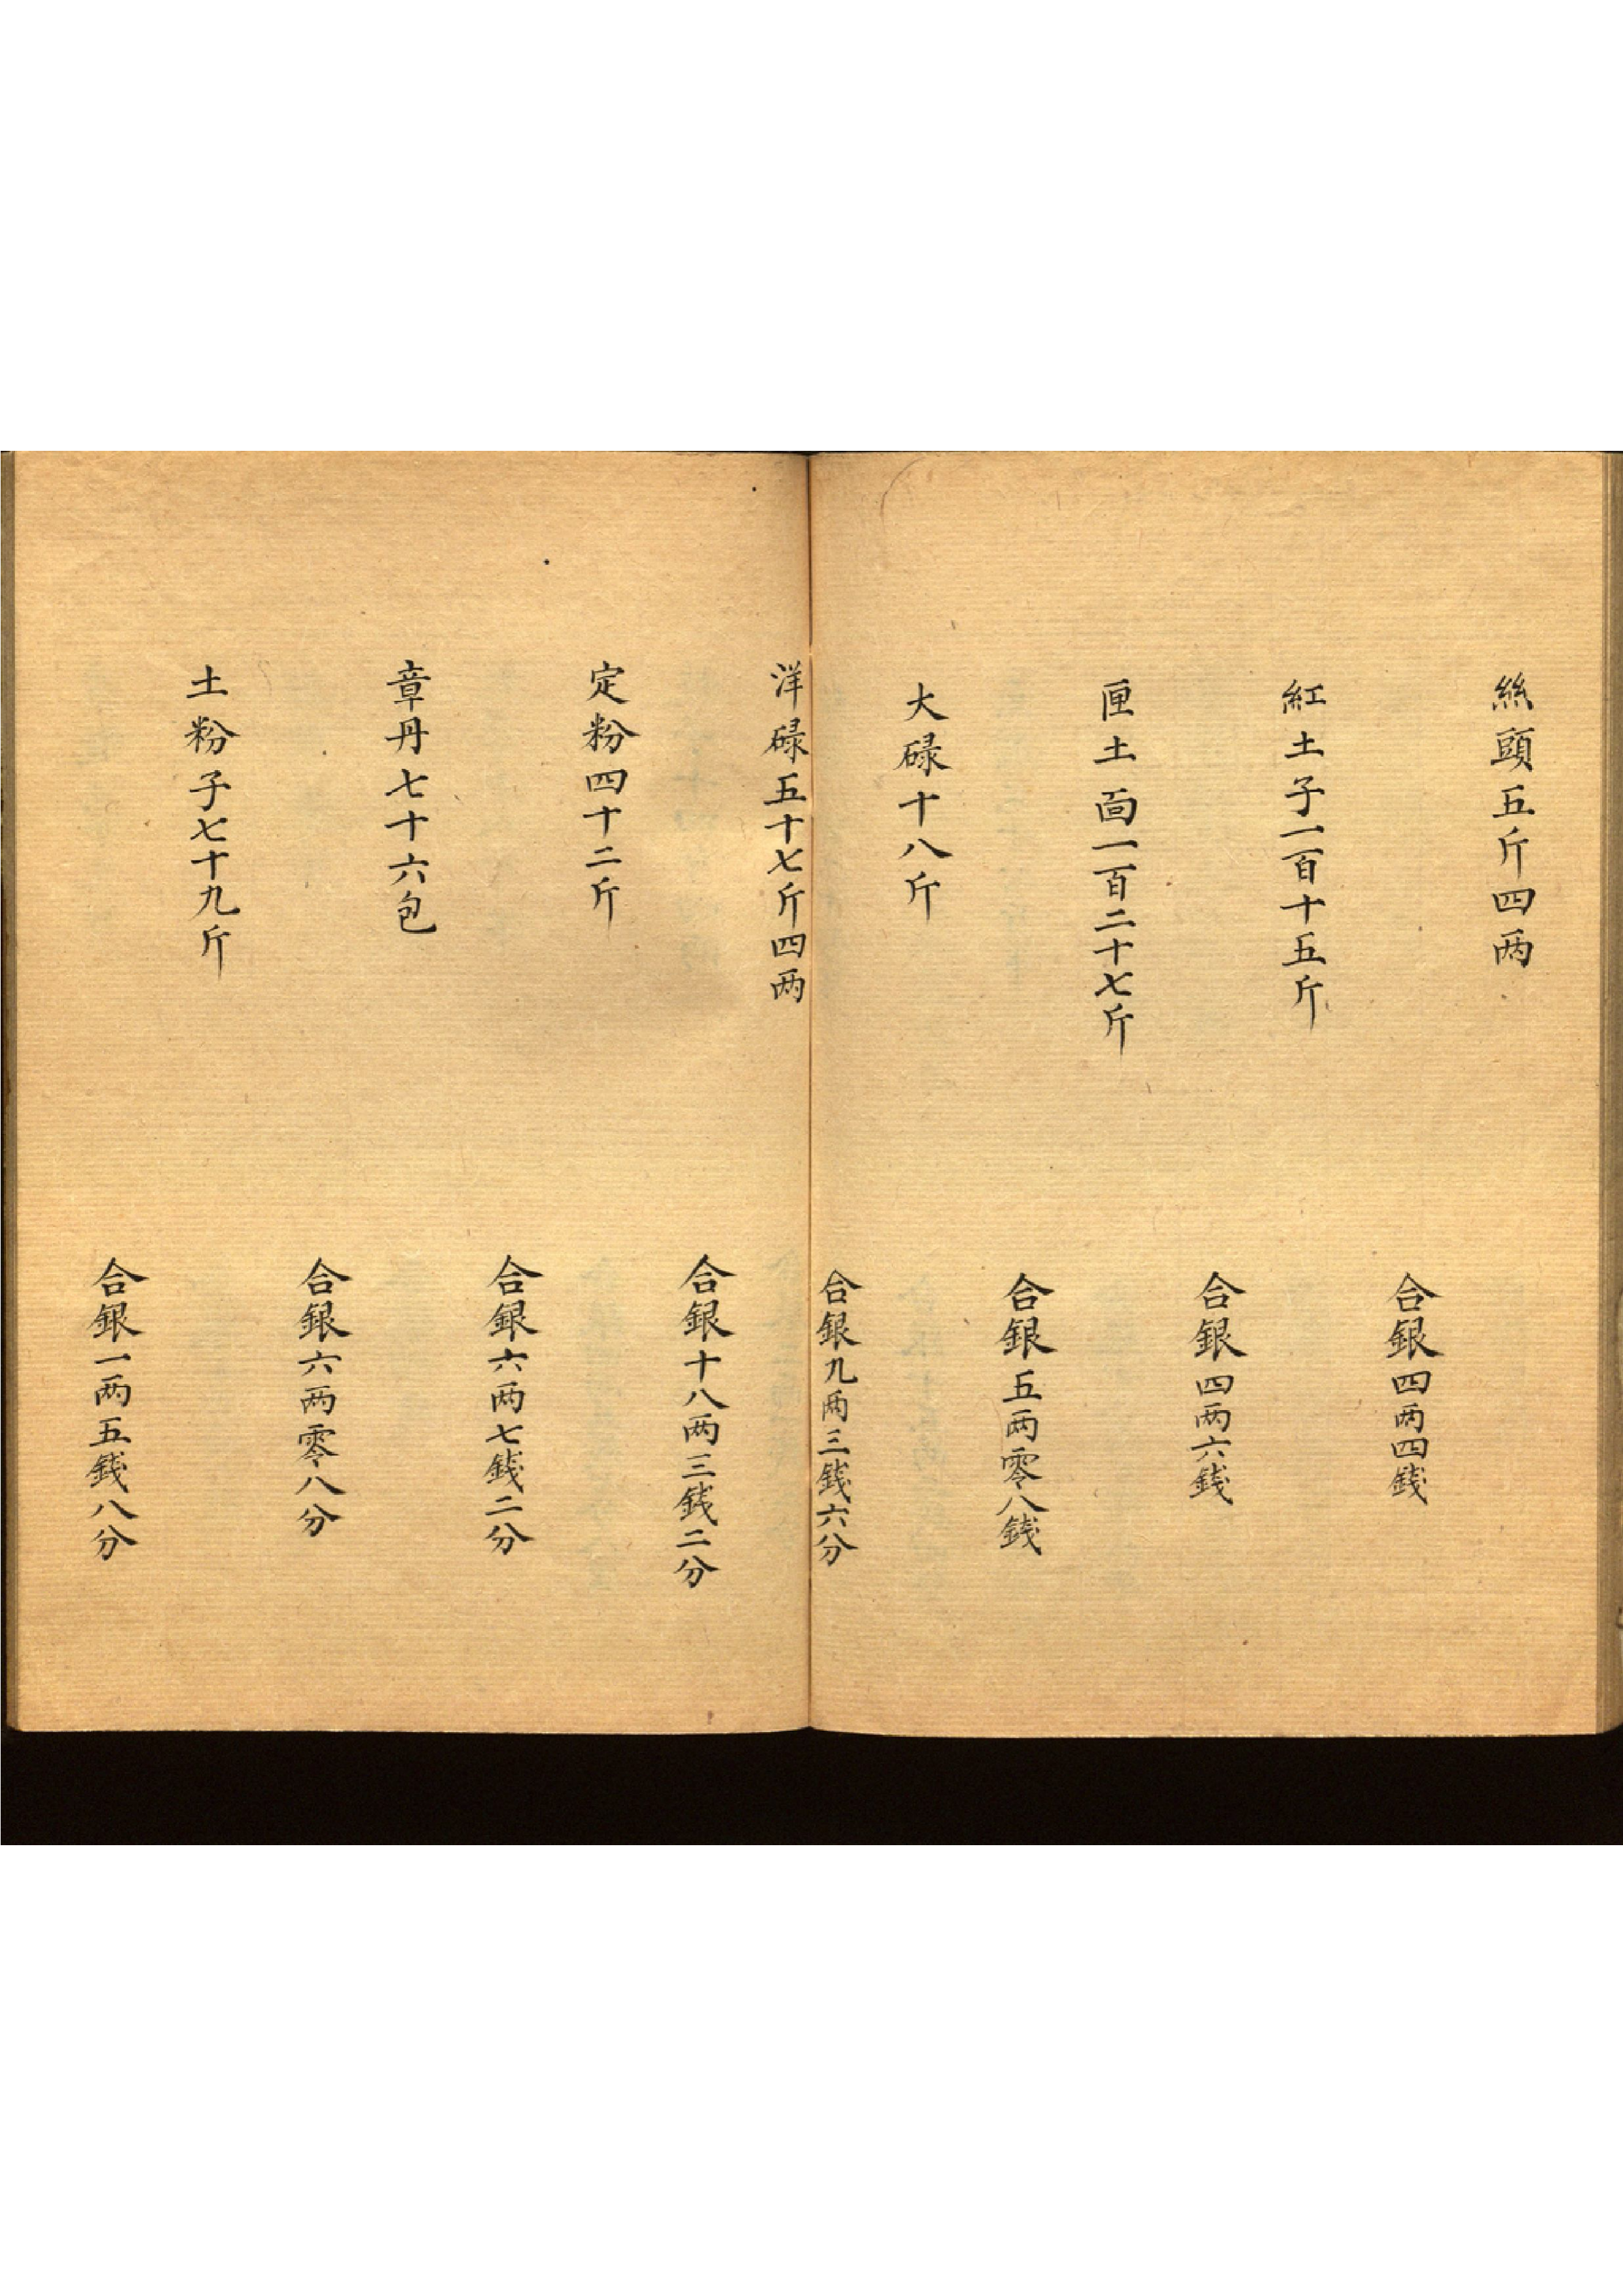 絲頭五斤四两
合銀四两四錢
紅土子一百十五斤
合銀四两六錢
匣土面一百二十七斤
合銀五两零八錢
大碌十八斤
合銀九两三錢六分
洋碌五十七斤四两
合銀十八两三錢二分
定粉四十二斤
合銀六两七錢二分
章丹七十六包
合銀六两零八分
土粉子七十九斤
合銀一两五錢八分